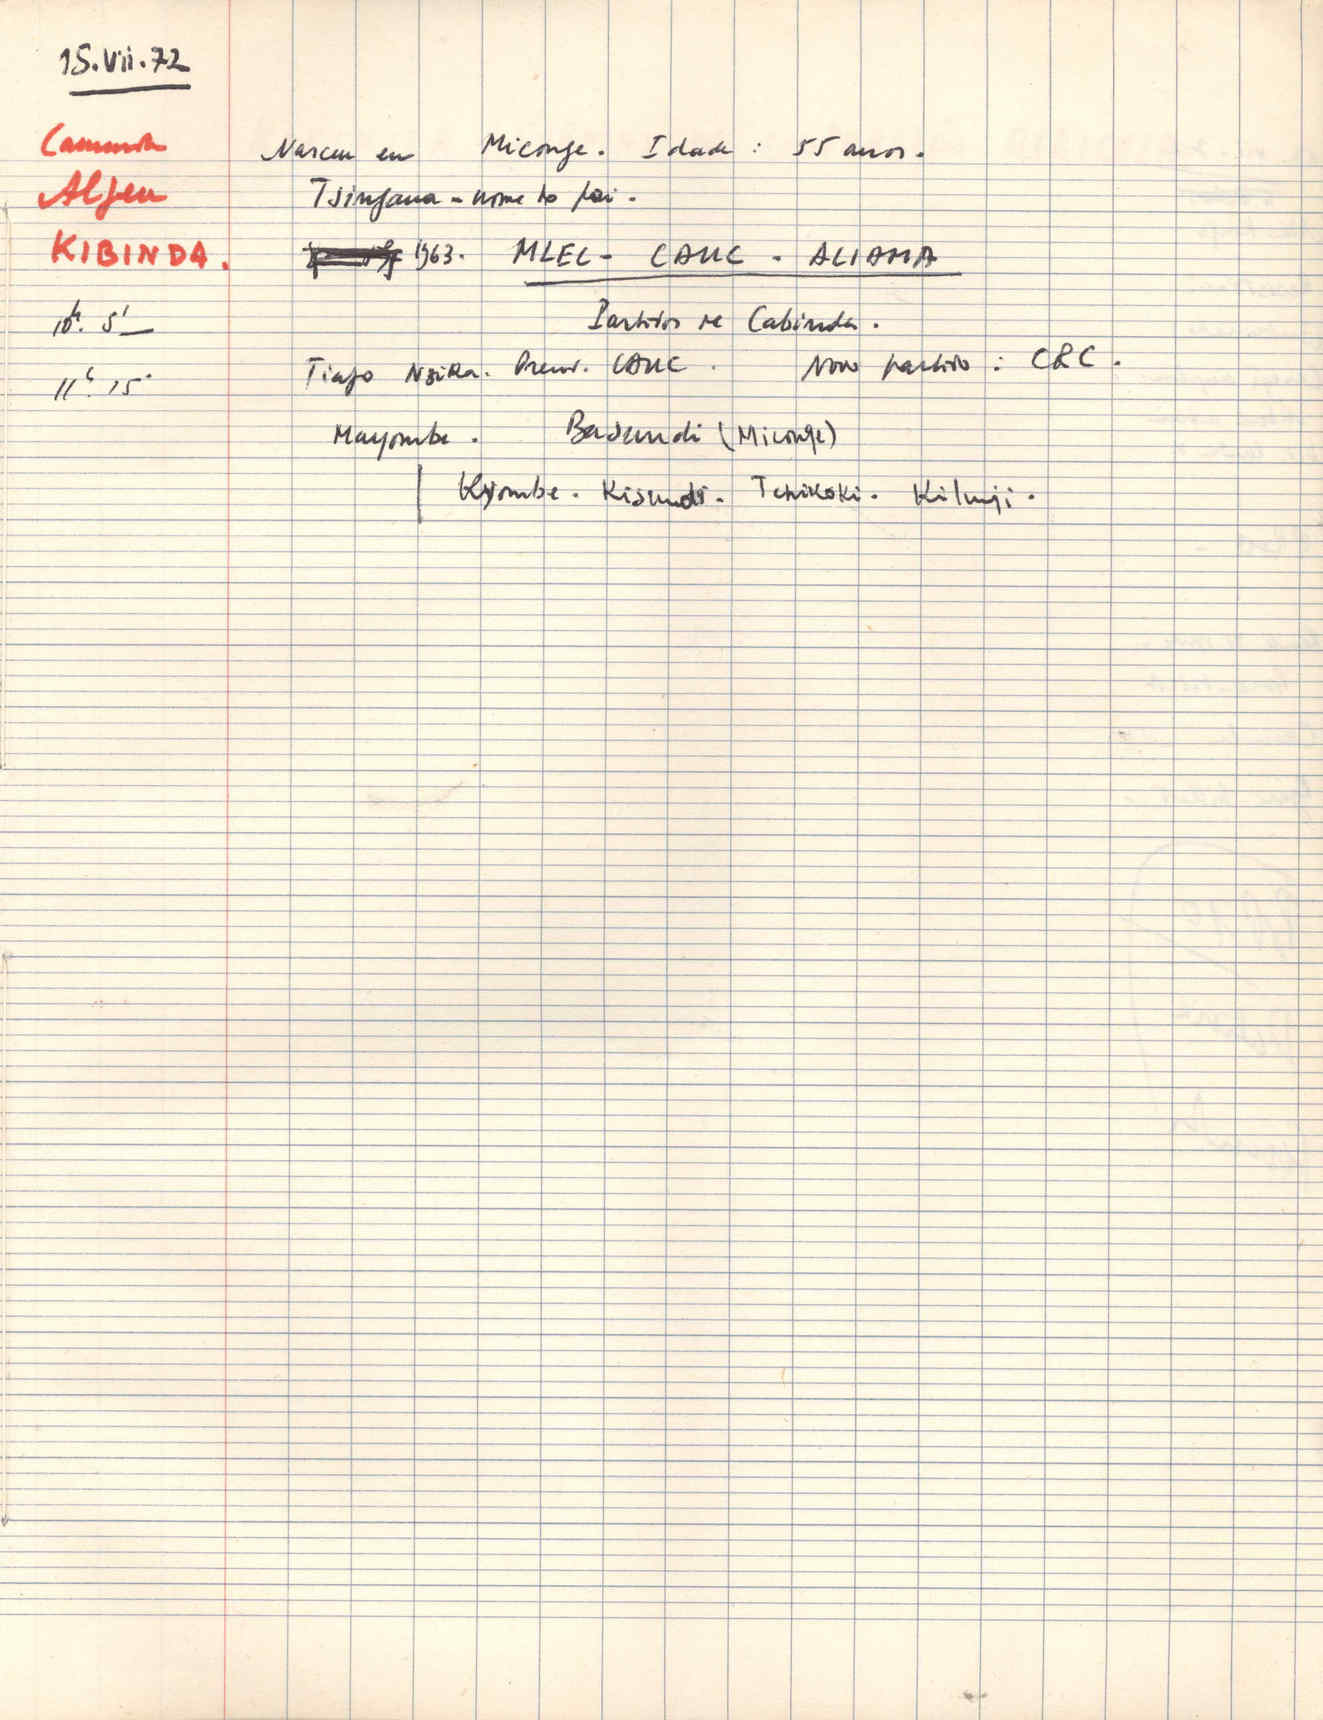 15.VII.72
Camarada
Alfeu
KIBINDA.
10h. 5'
11h. 15'
Nasceu em Miconge. Idade: 55 anos.
Tsingana - nome do pai.
1963. MLEC - CAUC - ALIAMA
Partidos de Cabinda.
Tiago Nzita. Presid. CAUC. Novo partido: CRC.
Mayombe. Basundi (Miconge)
Kiyombe. Kisundi. Tchikoki. Kilinji.